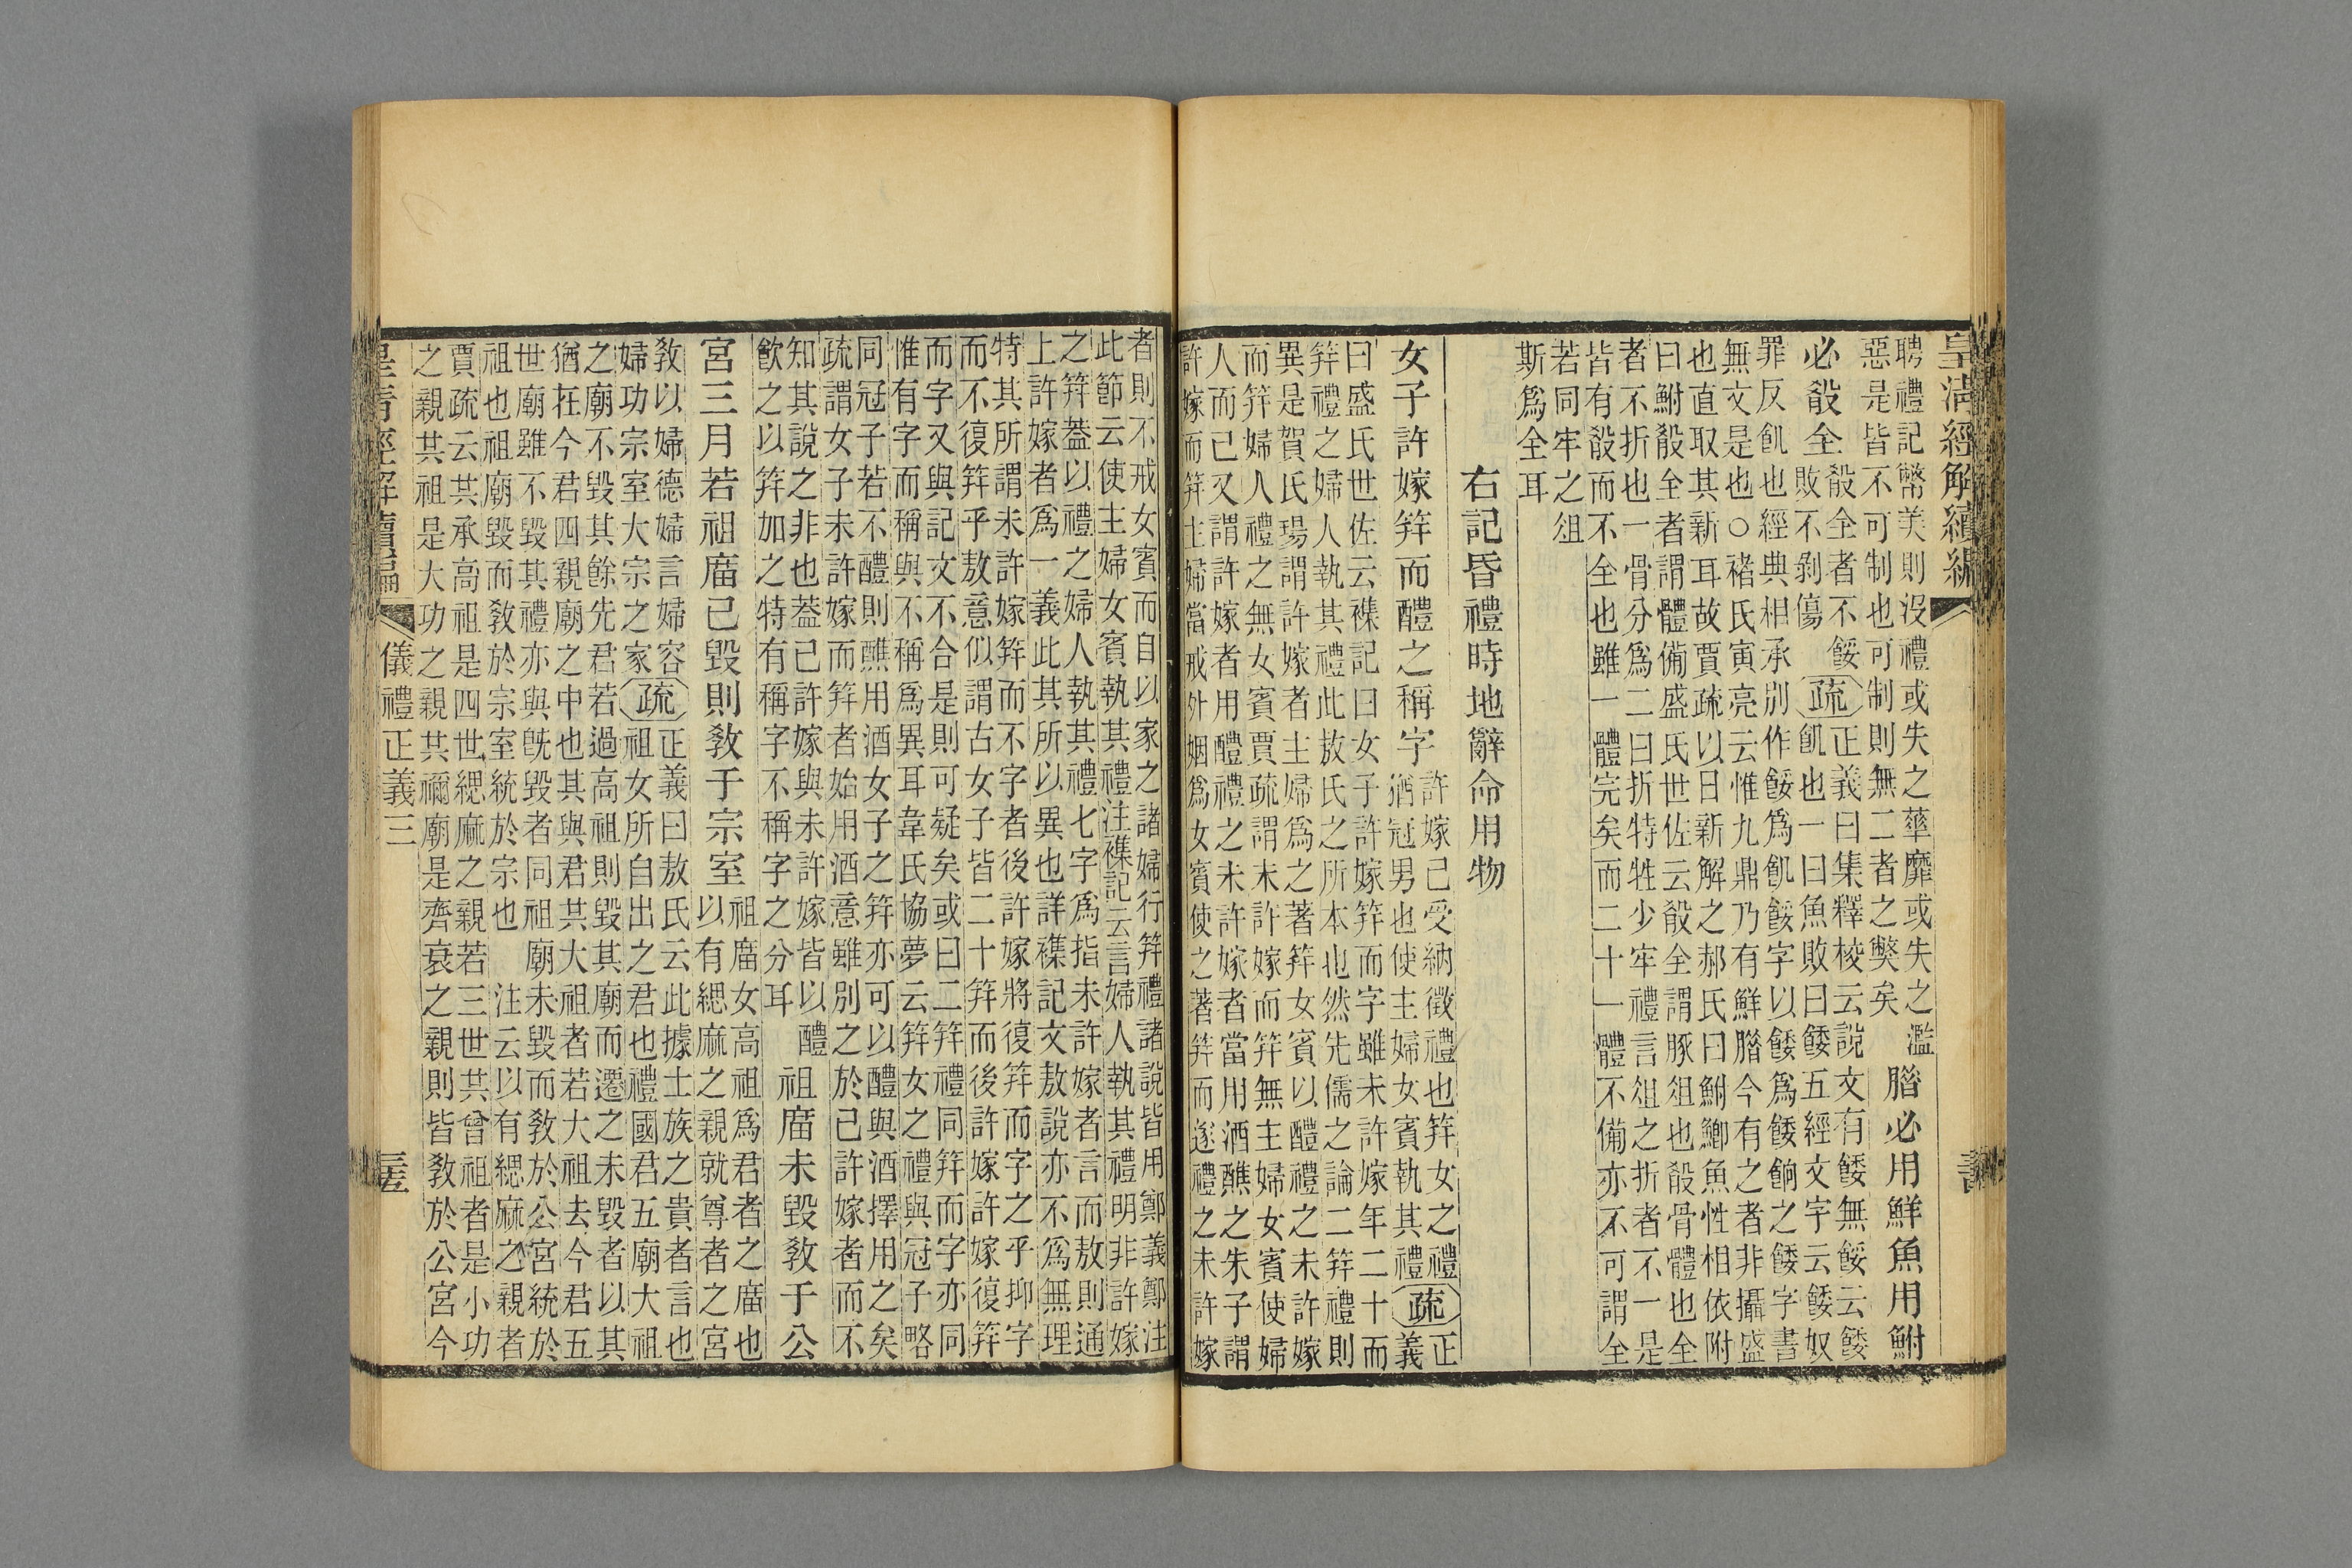 皇清經解續編
聘禮記幣美則沒禮或失之華靡或失之濫
惡是皆不可制也可制則無二者之獘矣
腊必用鮮魚用鮒
必殽全
殽全者不餒
敗不剥傷
疏
正義曰集釋校云說文有餧無餒云餧
飢也一曰魚敗曰餧五經文字云餧奴
罪反飢也經典相承別作餒爲飢餒字以餧爲餧餉之餧字書
無文是也○褚氏寅亮云惟九鼎乃有鮮腊今有之者非攝盛
也直取其新耳故賈疏以日新解之郝氏曰鮒鯽魚性相依附
曰鮒殽全者謂體備盛氏世佐云殽全謂豚俎也殽骨體也全
者不折也一骨分爲二曰折特牲少牢禮言俎之折者不一是
皆有殽而不全也雖一體完矣而二十一體不備亦不可謂全
若同牢之俎
斯爲全耳
右記昏禮時地辭命用物
女子許嫁筓而醴之稱字
許嫁已受納徵禮也筓女之禮
猶冠男也使主婦女賓執其禮
疏
正
義
曰盛氏世佐云襍記曰女子許嫁筓而字雖未許嫁年二十而
筓禮之婦人執其禮此敖氏之所本也然先儒之論二筓禮則
異是賀氏瑒謂許嫁者主婦爲之著筓女賓以醴禮之未許嫁
而筓婦人禮之無女賓賈疏謂未許嫁而筓無主婦女賓使婦
人而已又謂許嫁者用醴禮之未許嫁者當用酒醮之朱子謂
許嫁而筓主婦當戒外姻爲女賓使之著筓而遂禮之未許嫁
者則不戒女賓而自以家之諸婦行筓禮諸說皆用鄭義鄭注
此節云使主婦女賓執其禮注襍記云言婦人執其禮明非許嫁
之筓葢以禮之婦人執其禮七字爲指未許嫁者言而敖則通
上許嫁者爲一義此其所以異也詳襍記文敖說亦不爲無理
特其所謂未許嫁筓而不字者後許嫁將復筓而字之乎抑字
而不復筓乎敖意似謂古女子皆二十筓而後許嫁許嫁復筓
而字又與記文不合是則可疑矣或曰二筓禮同筓而字亦同
惟有字而稱與不稱爲異耳韋氏協夢云筓女之禮與冠子略
同冠子若不醴則醮用酒女子之筓亦可以醴與酒擇用之矣
疏謂女子未許嫁而筓者始用酒意雖別之於已許嫁者而不
知其說之非也葢已許嫁與未許嫁皆以醴
飮之以筓加之特有稱字不稱字之分耳
祖庿未毀敎于公
宮三月若祖庿已毀則敎于宗室
祖庿女高祖爲君者之庿也
以有緦麻之親就尊者之宮
敎以婦德婦言婦容
婦功宗室大宗之家
疏
正義曰敖氏云此據士族之貴者言也
祖女所自出之君也禮國君五廟大祖
之廟不毀其餘先君若過高祖則毀其廟而遷之未毀者以其
猶在今君四親廟之中也其與君共大祖者若大祖去今君五
世廟雖不毀其禮亦與旣毀者同祖廟未毀而敎於公宮統於
祖也祖廟毀而敎於宗室統於宗也 注云以有緦麻之親者
賈疏云共承高祖是四世緦麻之親若三世共曾祖者是小功
之親共祖是大功之親共禰廟是齊衰之親則皆敎於公宮今
皇清經解續編
儀禮正義三